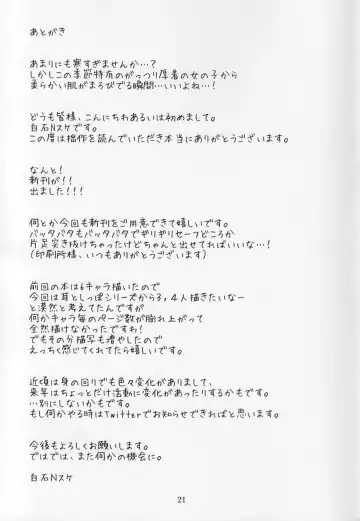 あとがき
あまりにも寒すぎませんか…?
しかしこの季節特有のがっつり厚着の女の子から
柔らかい肌がまろびでる瞬間…いいよね…!
どうも皆様、こんにちわあるいは初めまして。
白石Nスケです。
この度は拙作を読んでいただき本当にありがとうございます。
なんと!
新刊が!!
出ました!!!
何とか今回も新刊をご用意できて嬉しいです。
バッタバタもバッタバタでギリギリセーフどころか
片足突き抜けちゃったけどちゃんと出せてればいいな…!
(印刷所様、いつもありがとうございます)
前回の本は6キャラ描いたので
今回は耳としっぽシリーズから3,4人描きたいなー
と漠然と考えてたんですが
何かキャラ毎のページ数が膨れ上がって
全然描けなかったですわ!
でもその分描写も増やしたので
えっちく感じてくれてたら嬉しいです。
近頃は身の回りでも色々変化がありまして、
来年はちょっとだけ活動に変化があったりするかもです。
...別にしないかもです。
もし何かやる時はTwitterでお知らせできればと思います。
今後もよろしくお願いします。
ではでは、また何かの機会に。
白石Nスケ
21